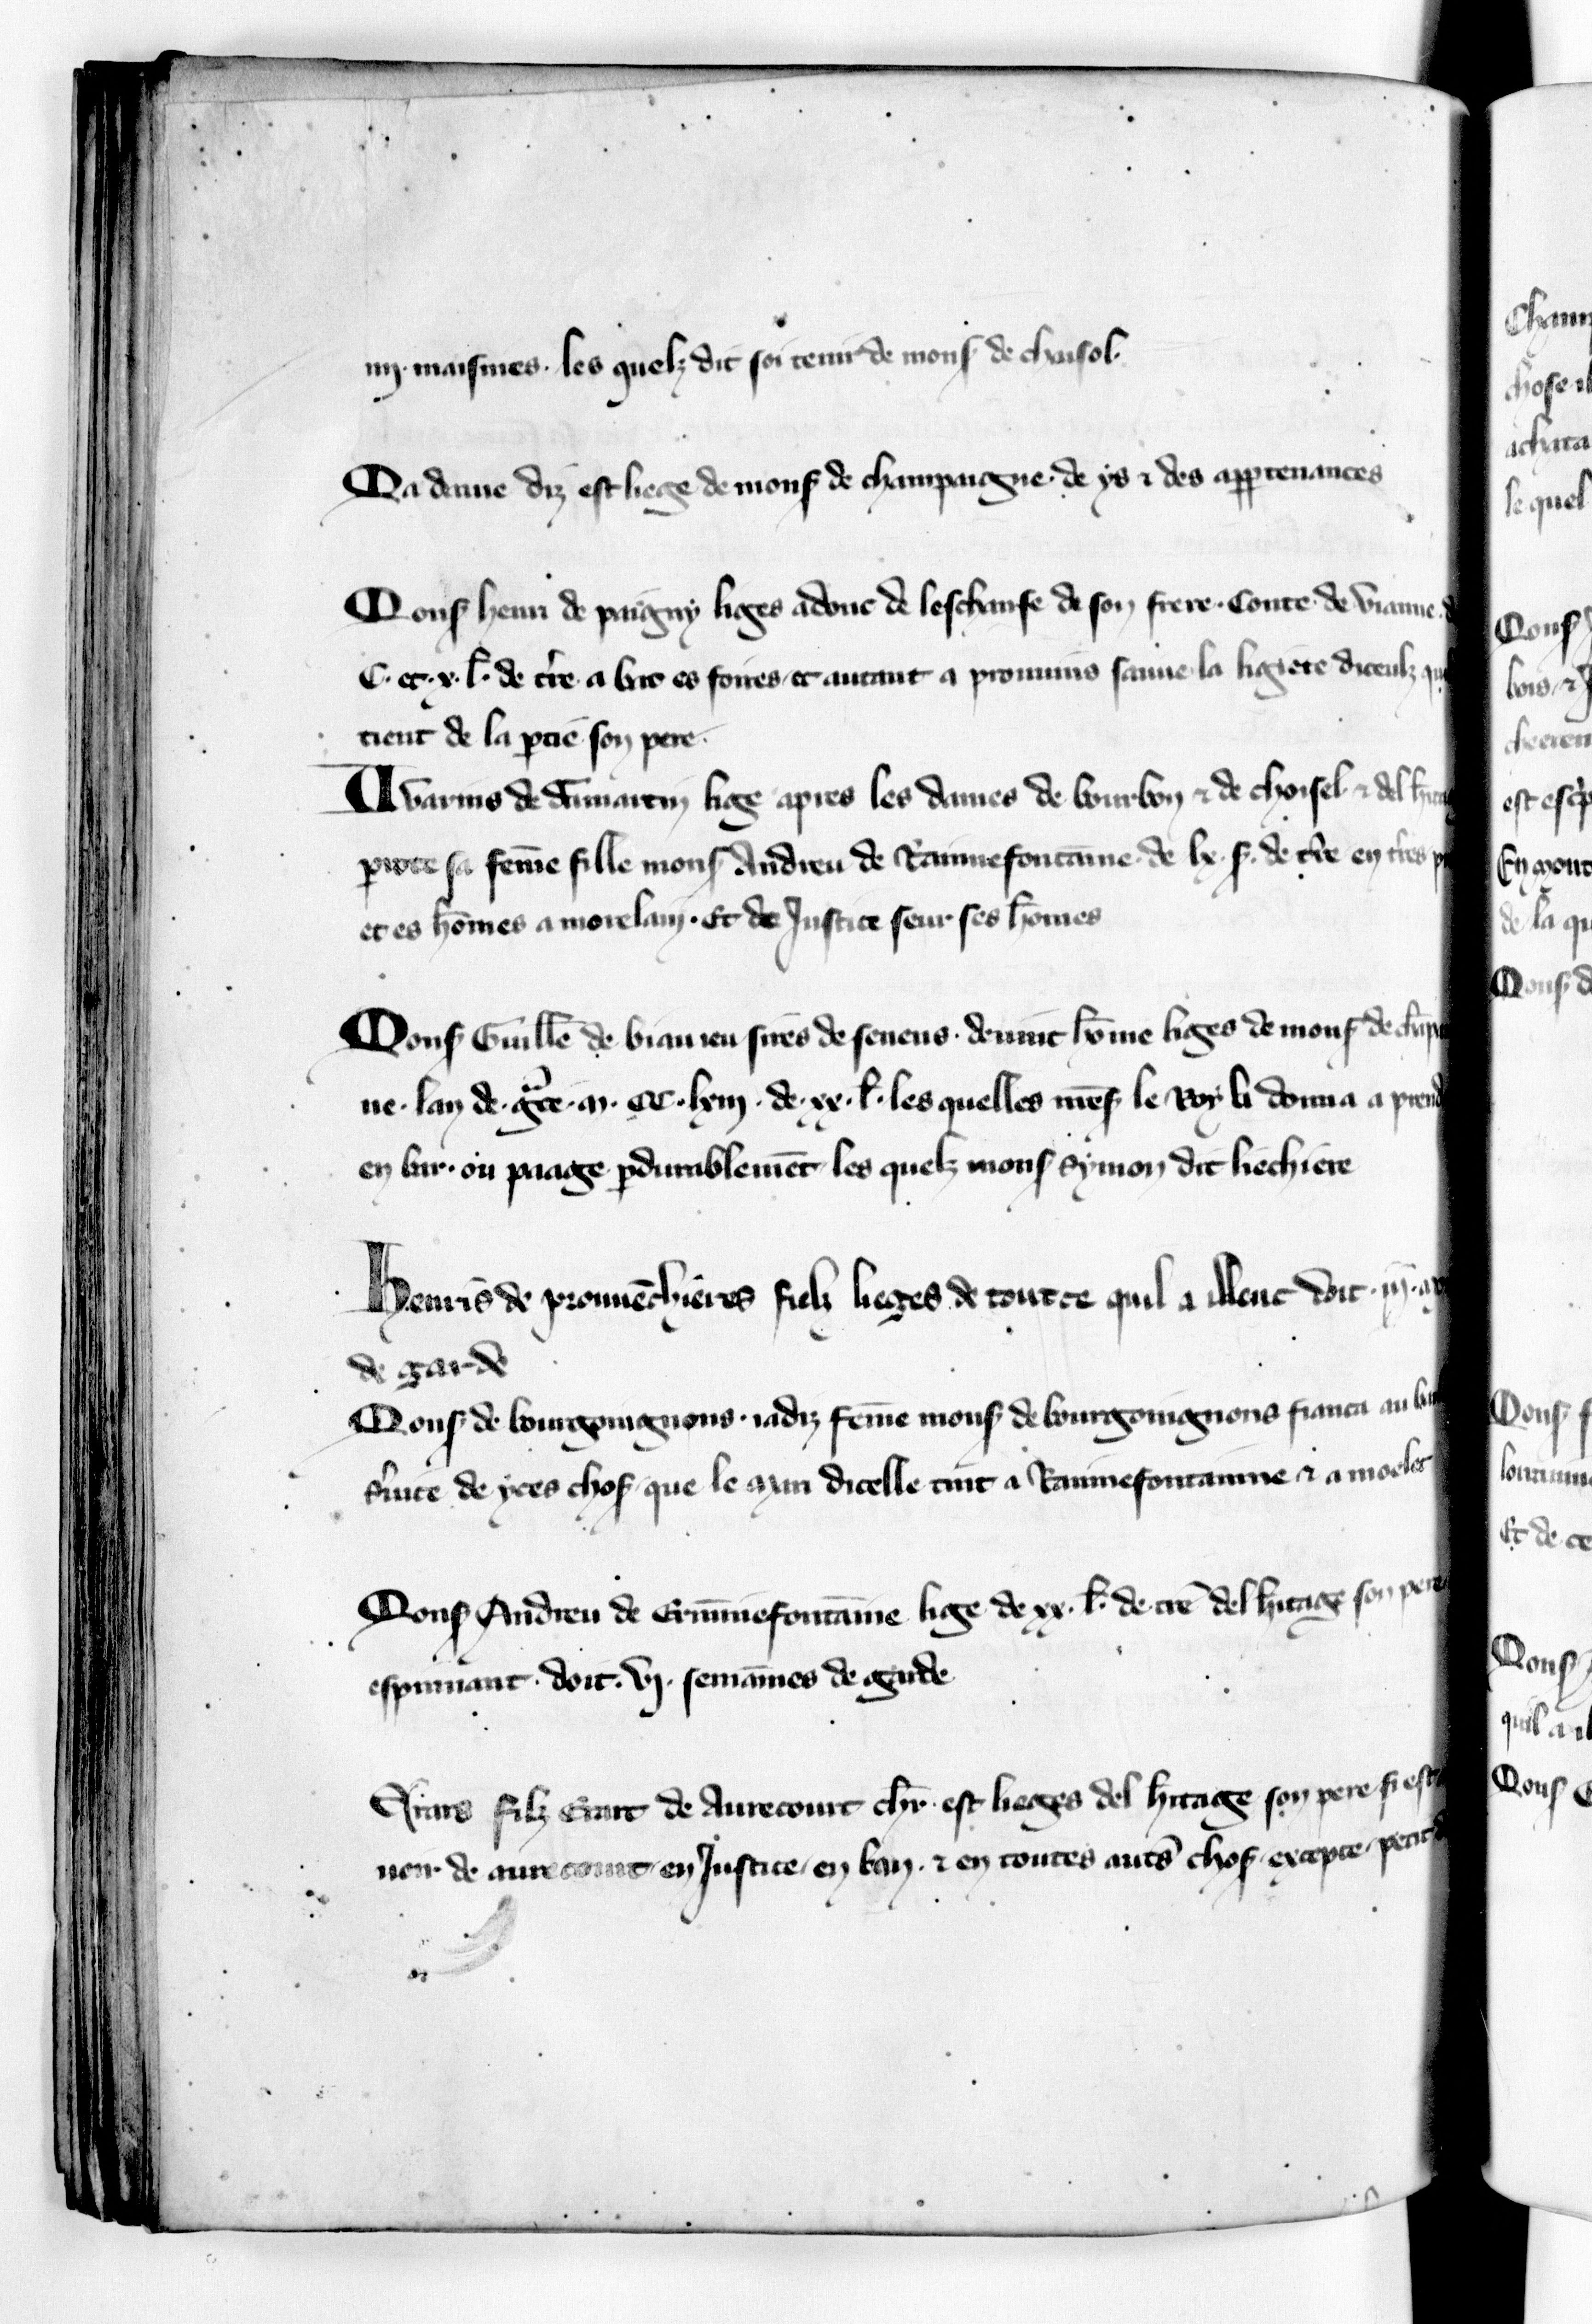 iiij. maisnies. les quelz dit soi tenir de mons de choisol.
Ma dame diz est liege de mons de champaigne. de ys ⁊ des apptenances
Mons henri de paigny liges adonc de leschanse de son frere. Conte de vianne.
C. et. x. l. de tre a bar es foires et autant a prouuins sauue la ligiete diceulz
tient de la ptie son pere.
Warins de dāmartin lige apres les dames de bourbon ⁊ de choisel ⁊ del
sa feme fille mons Andreu de Raimnefontaine. de lx. s. de tre en
et es homes a morelain. Et de Justice seur ses homes
Mons Guille de biauieu sires de seneus. deuint hōme liges de mons de
ne. lan de gce. m. CC. lxiij. de. xx. l. les quelles mes le Roy li donna a
en bar. ou paage pdurablemēt les quelz mons symon dit liechiere
Henris de prouuēchieres fielz lieges de tout ce quil a illeuc doit. iij.
de garde
Mons de bourgoingnons. iadiz feme mons de bourgoingnons fianca au
suice de yces chos que le mari dicelle tint a Raimnefontainne ⁊ a moelet
Mons Andreu de Ermniefontaine lige de xx. l. de tre del hitage son pere
espinant. doit. vj. semaines de garde
Erars filz Erart de Aurecourt chr. est lieges del hitage son pere si est
noir de aurecourt en Justice en ban. ⁊ en toutes auts chos excepte petit
Cham
chose
achata
le quel
Mons
bois ⁊
est
En mont
de la
Mons
Mons
Et de ce
Mons
quil a
Mons